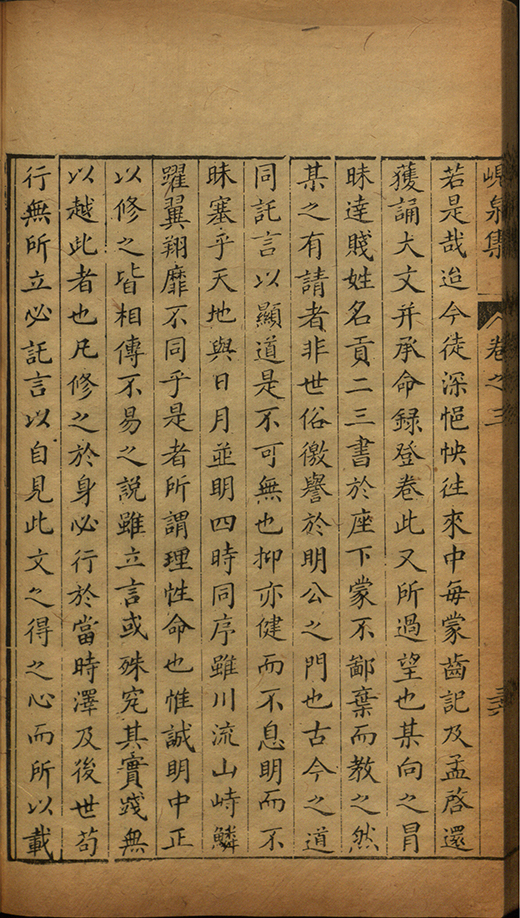 峴泉集 卷之三
若是哉迨今徒深悒怏往來中每蒙齒記及孟啓還
獲誦大文并承命録登卷此又所過望也某向之冐
昧達賤姓名貢二三書於座下蒙不鄙棄而教之然
某之有請者非世俗徼譽於明公之門也古今之道
同託言以顯道是不可無也抑亦健而不息明而不
昧塞乎天地與日月並明四時同序雖川流山峙鱗
躍翼翔靡不同乎是者所謂理性命也惟誠明中正
以修之皆相傳不易之說雖立言或殊究其實諓無
以越此者也凡修之於身必行於當時澤及後世苟
行無所立必託言以自見此文之得之心而所以載